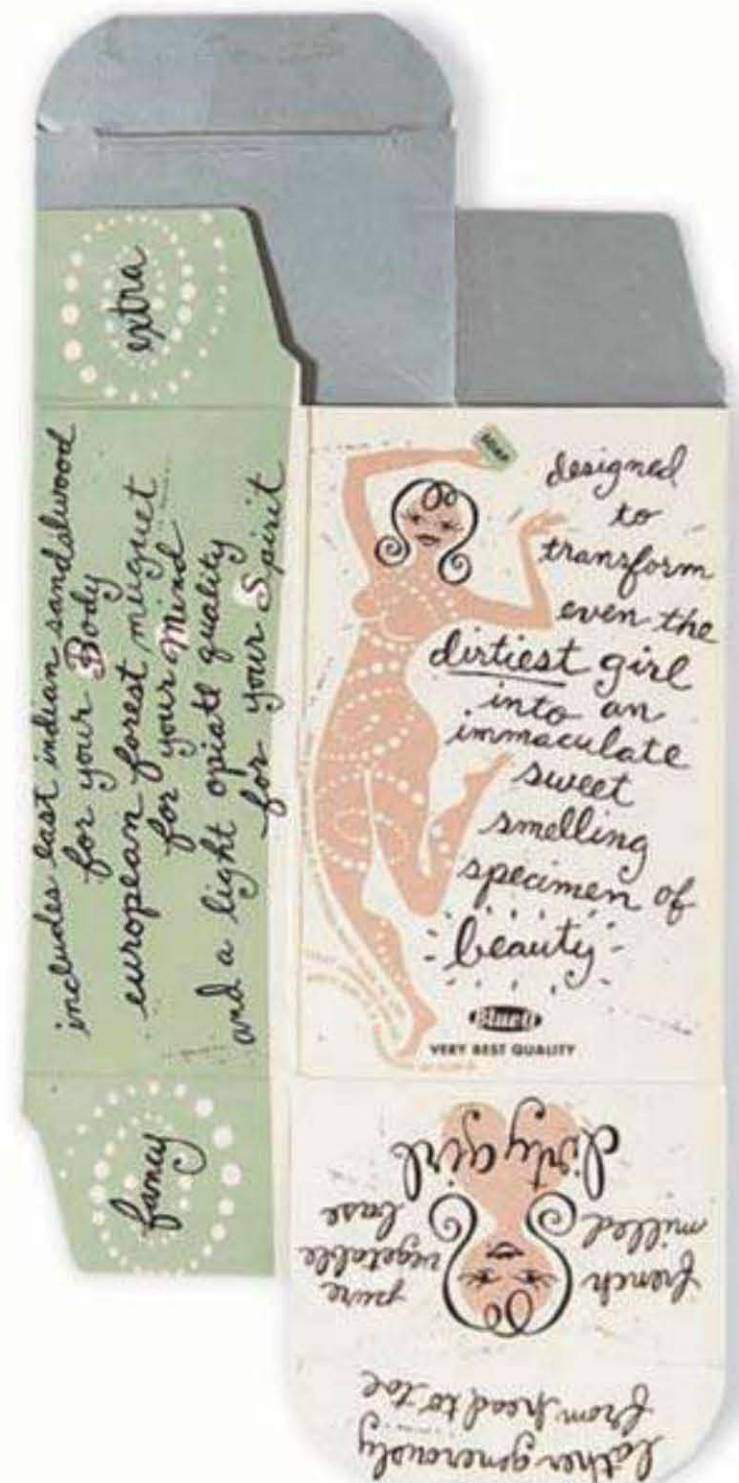 extra
includes east indian sandalwood
for your Body
european forest muguet
for your Mind
and a light opiate quality
for your Spirit
fancy
SOAP
designed
to
transform
even the
dirtiest girl
into an
immaculate
sweet
smelling
specimen of
beauty
BlueQ
VERY BEST QUALITY
dirty girl
french
milled
pure
vegetable
base
lather generously
from head to toe